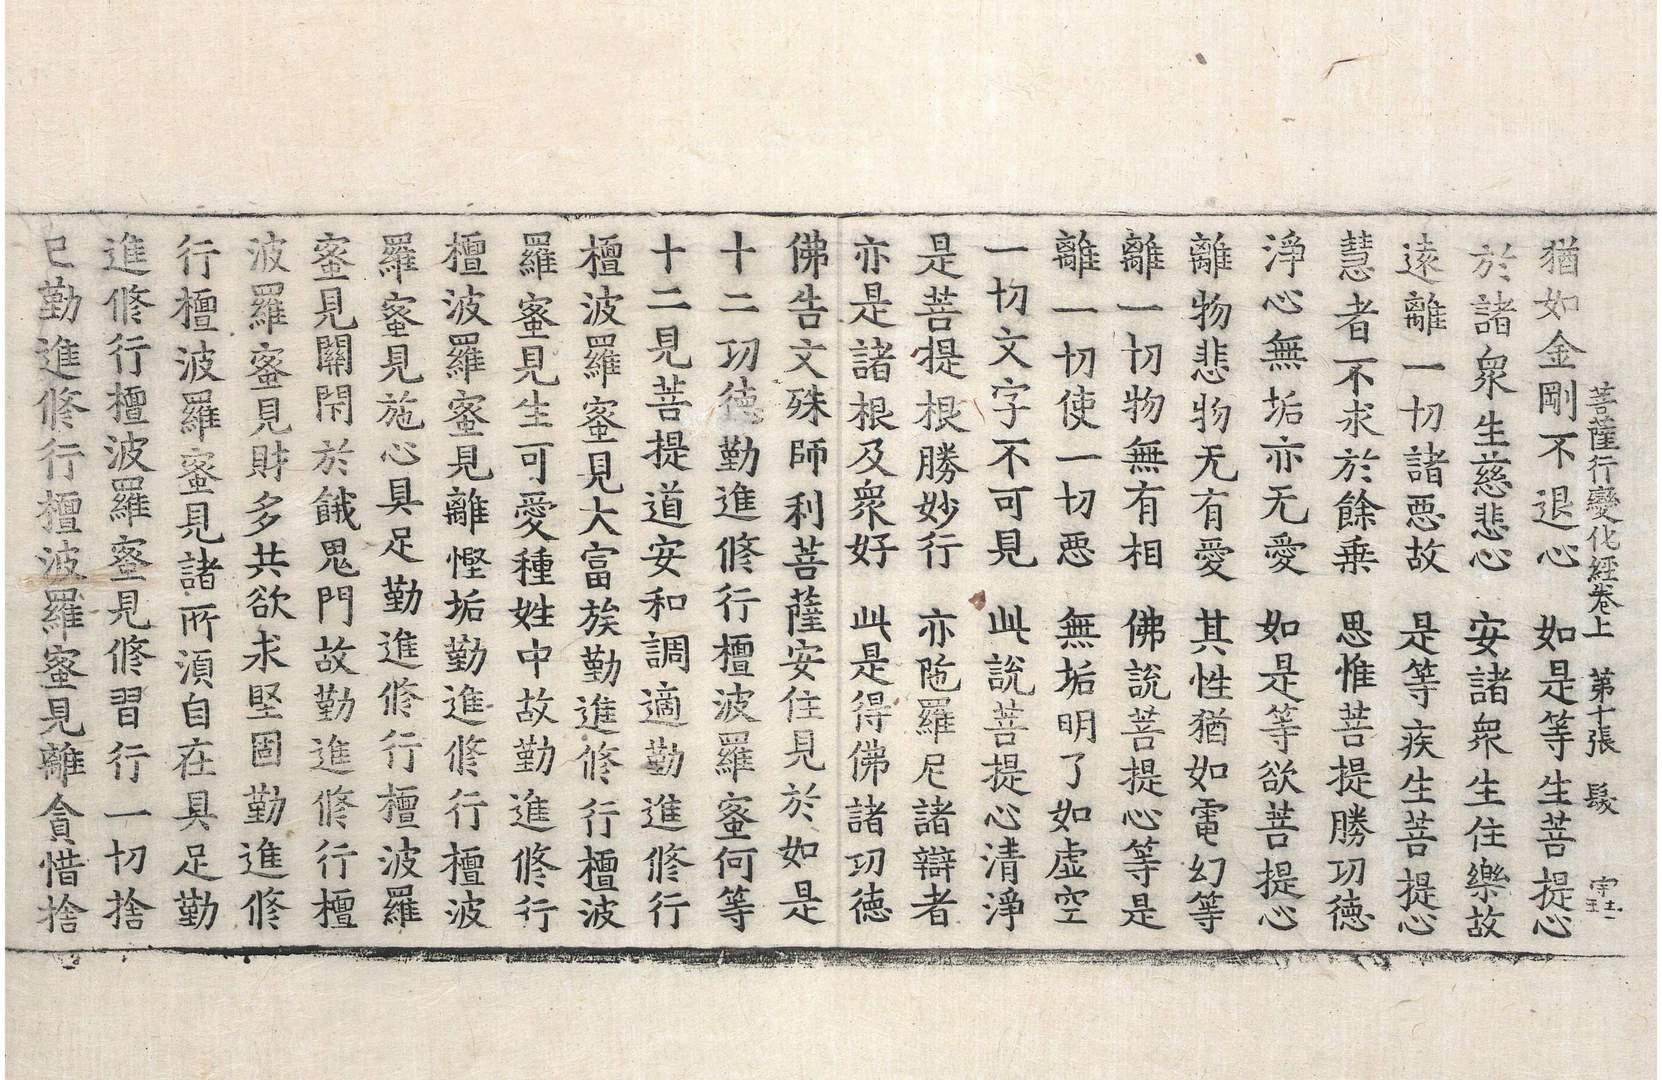 菩薩行變化經卷上　第十張　髮
猶如金剛不退心　如是等生菩提心
於諸衆生慈悲心　安諸衆生住樂故
遠離一切諸惡故　是等疾生菩提心
慧者不求於餘乘　思惟菩提勝功德
淨心無垢亦无愛　如是等欲菩提心
離物悲物无有愛　其性猶如電幻等
離一切物無有相　佛說菩提心等是
離一切使一切惡　無垢明了如虛空
一切文字不可見　此說菩提心清淨
是菩提根勝妙行　亦陁羅尼諸辯者
亦是諸根及衆好　此是得佛諸功德
佛告文殊師利菩薩安住見於如是
十二功德勤進修行檀波羅蜜何等
十二見菩提道安和調適勤進修行
檀波羅蜜見大富族勤進修行檀波
羅蜜見生可愛種姓中故勤進修行
檀波羅蜜見離慳垢勤進修行檀波
羅蜜見施心具足勤進修行檀波羅
蜜見關閇於餓鬼門故勤進修行檀
波羅蜜見財多共欲求堅固勤進修
行檀波羅蜜見諸所湏自在具足勤
進修行檀波羅蜜見修習行一切捨
已勤進修行檀波羅蜜見離貪惜捨